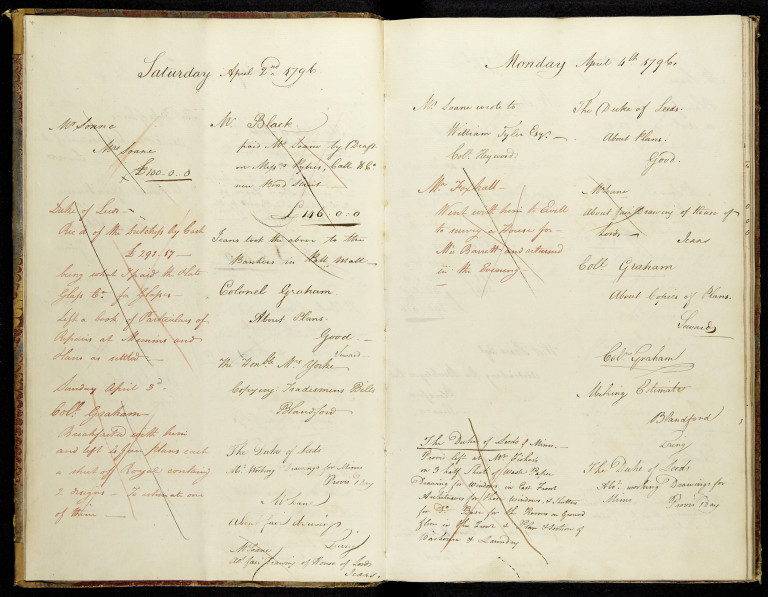 Saturday April 2nd. 1796
Mr Soane
Mrs Soane
£100-0-0
Duke of Leeds -
Rec'd of the by Cash
£291.17 -
being what I paid the Plate
Glass Co. for Glasses -
Left a book of Particulars of
Repairs at Mimms and
Ham as settled -
Sunday April 3d.
Coll. Graham
Breakfasted with him
and left fair plans each
a sheet of Royal containing
2 designs - To return one
of them -
Mr. Black
paid Mr Soane by Draft
on Messrs Call & Co
new Bond Street
£146 0-0
Jeans took the above to the
Bankers in Pall Mall -
Colonel Graham
About Plans.
Good -
Seward
The Honble Mrs Yorke
Copying Tradesmens Bills
Blandford
The Duke of Leeds
Abt Working Drawings for Mimms
Provis 1 day
Mr Soane
About fair drawings
Laing
Mr Soane
abt fair drawing of House of Lords
Jeans.
Monday April 4th 1796.
Mr. Soane wrote to
William Tyler Esqr. -
Coll. Heywood:
Mr Foxhall -
Went with him to Ewell
to survey a House for -
Mr Barrett and returned
in the Evening -
The Duke of Leeds & Mimms. -
Provis left at Mr Fisher's
on 3 half Sheets of Wash Paper
Drawing for Windows in Fore Front
Architraves for those windows, & Shutters
for Do. Base for the Rooms on Ground
Floor in the Front & Plan & Section of
Washouse & Laundry
The Duke of Leeds.
About Plans.
Good.
Mr Soane
About fair drawing of House of
Lords -
Jeans
Coll. Graham
About Copies of Plans.
Seward
Coll. Graham
Making Estimate
Blandford
Laing
The Duke of Leeds
Abt. working Drawings for
Mims
Provis 1 day